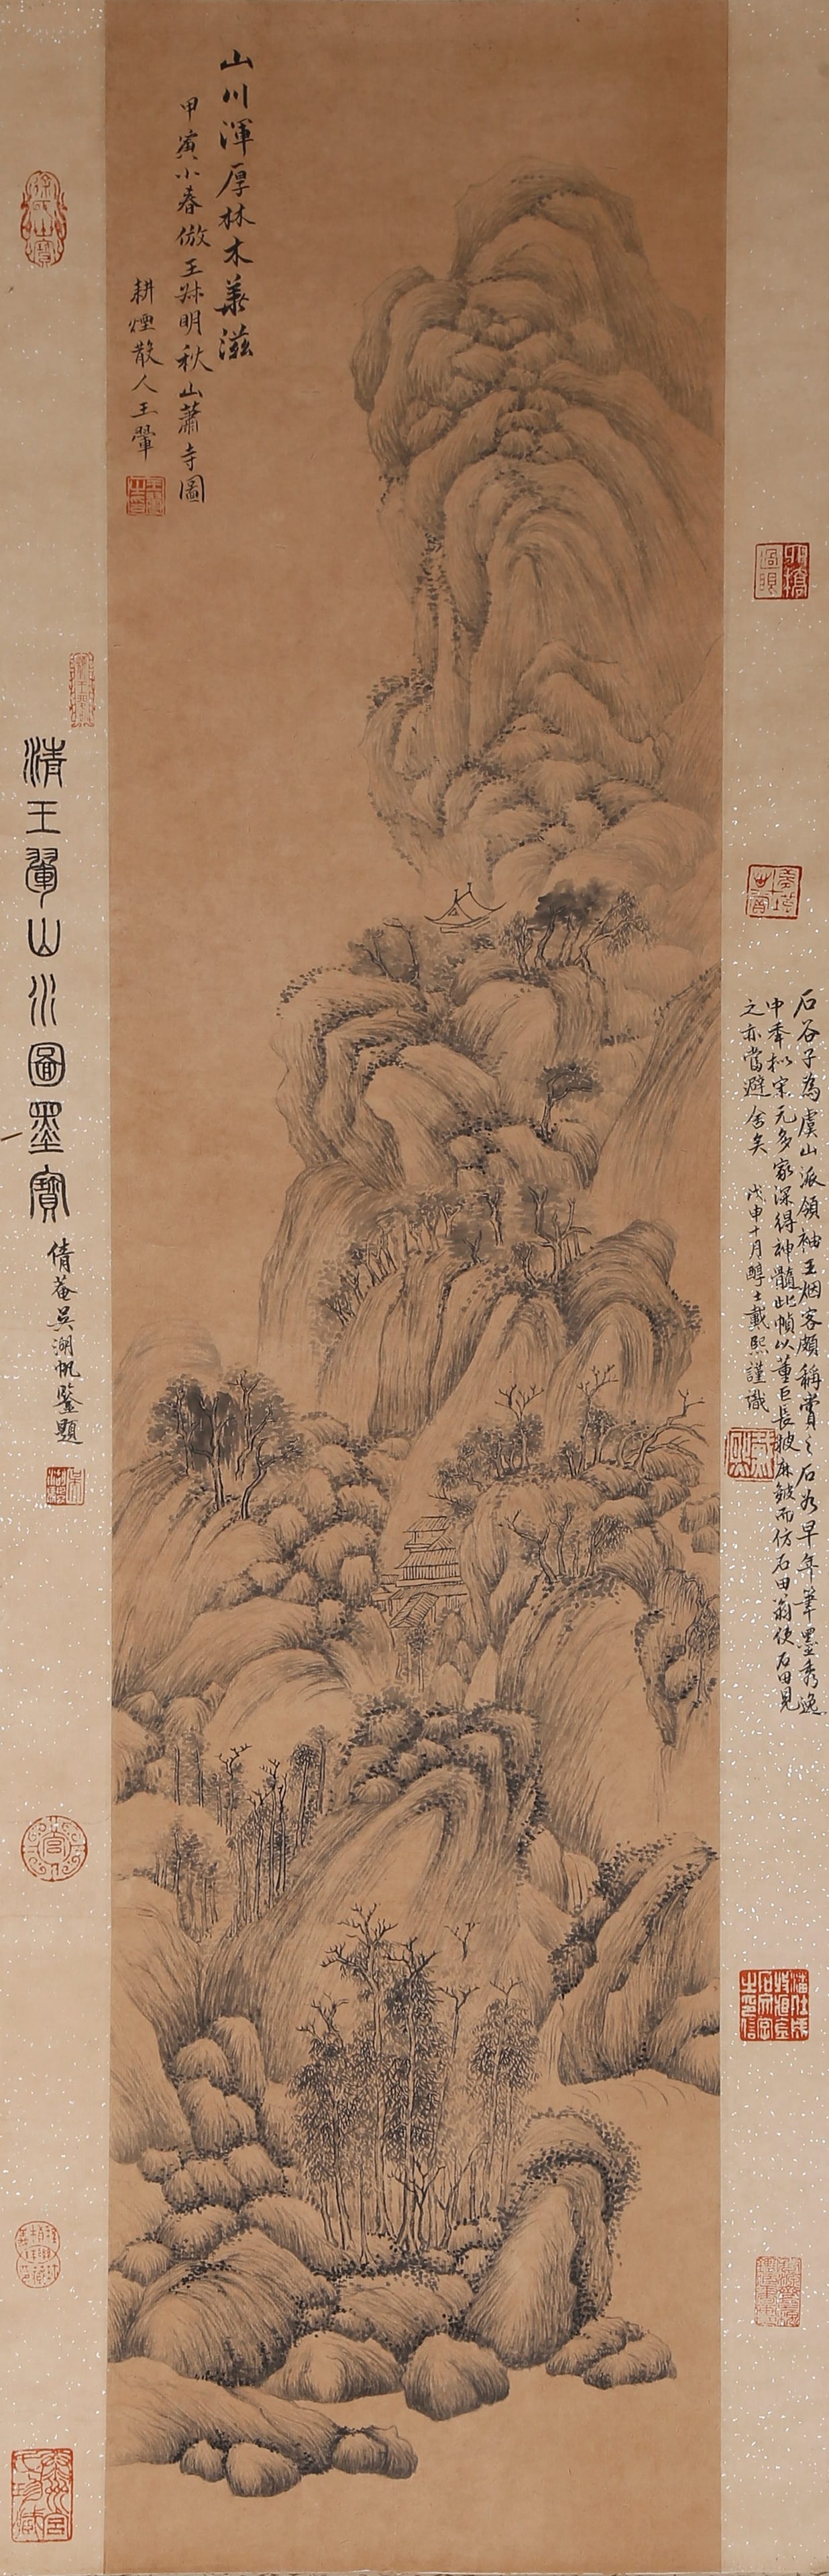 山川渾厚林木華滋
甲寅小春倣王叔明秋山蕭寺圖
耕煙散人王翬
石谷子為虞山派領袖王烟客頗稱賞之石谷早年筆墨秀逸
中年松宋元多家深得神髓此幀以董巨長披麻皴而仿石田翁使石田見
之亦當避舍矣 戊申十月醇士戴熙謹識
清王翬山水圖墨寶
倩菴吳湖帆鑒題